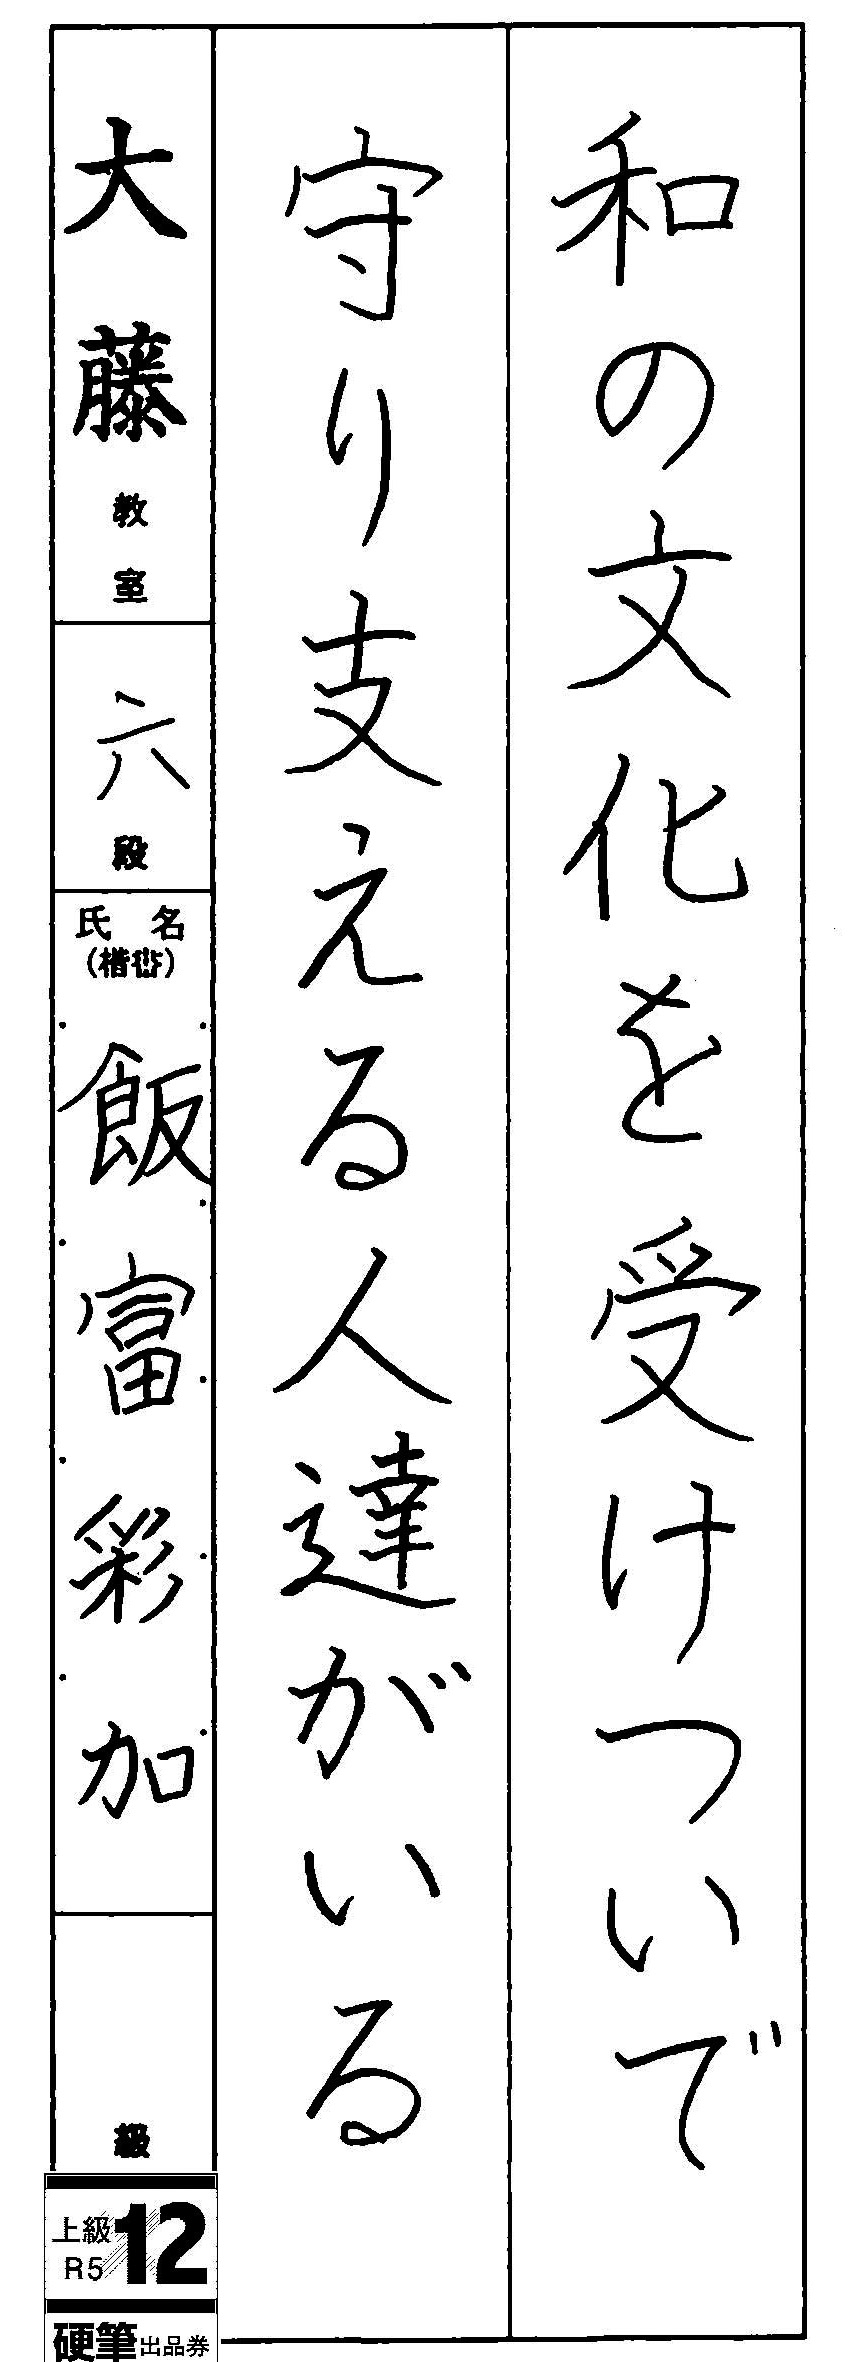 和の文化を受けついで
守り支える人達がいる
大藤教室
六段
氏名
(楷書)
飯富彩加
級
上級
R5
12
硬筆出品券